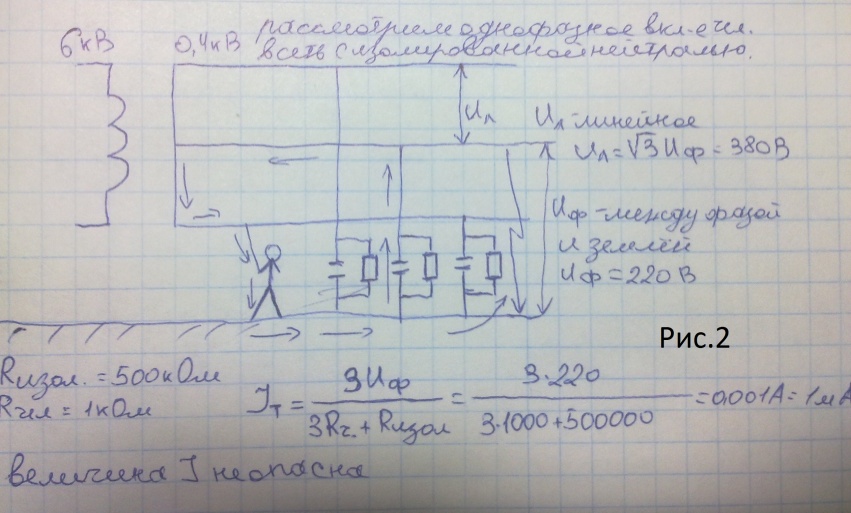 рассмотрим однофазное вкл-е чел.
в сеть с изолированной нейтралью.
6кВ
0,4кВ
Uл
Uл-линейное
Uл=√3 Uф = 380В
Uф-между фазой
и землей
Uф=220В
Рис.2
Rизол. = 500кОм
Rчел = 1кОм
Iт = 3Uф / 3Rч. + Rизол = 3·220 / 3·1000+500000 = 0,001А = 1мА
величина I неопасна